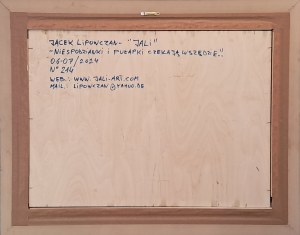 JACEK LIPOWCZAN - "JALI"
- NIESPODZIANKI I PUŁAPKI CZEKAJĄ WSZĘDZIE."
06-07/2024
N° 216
WEB.: WWW.JALI-ART.COM
MAIL.: LIPOWCZAN@YAHOO.DE